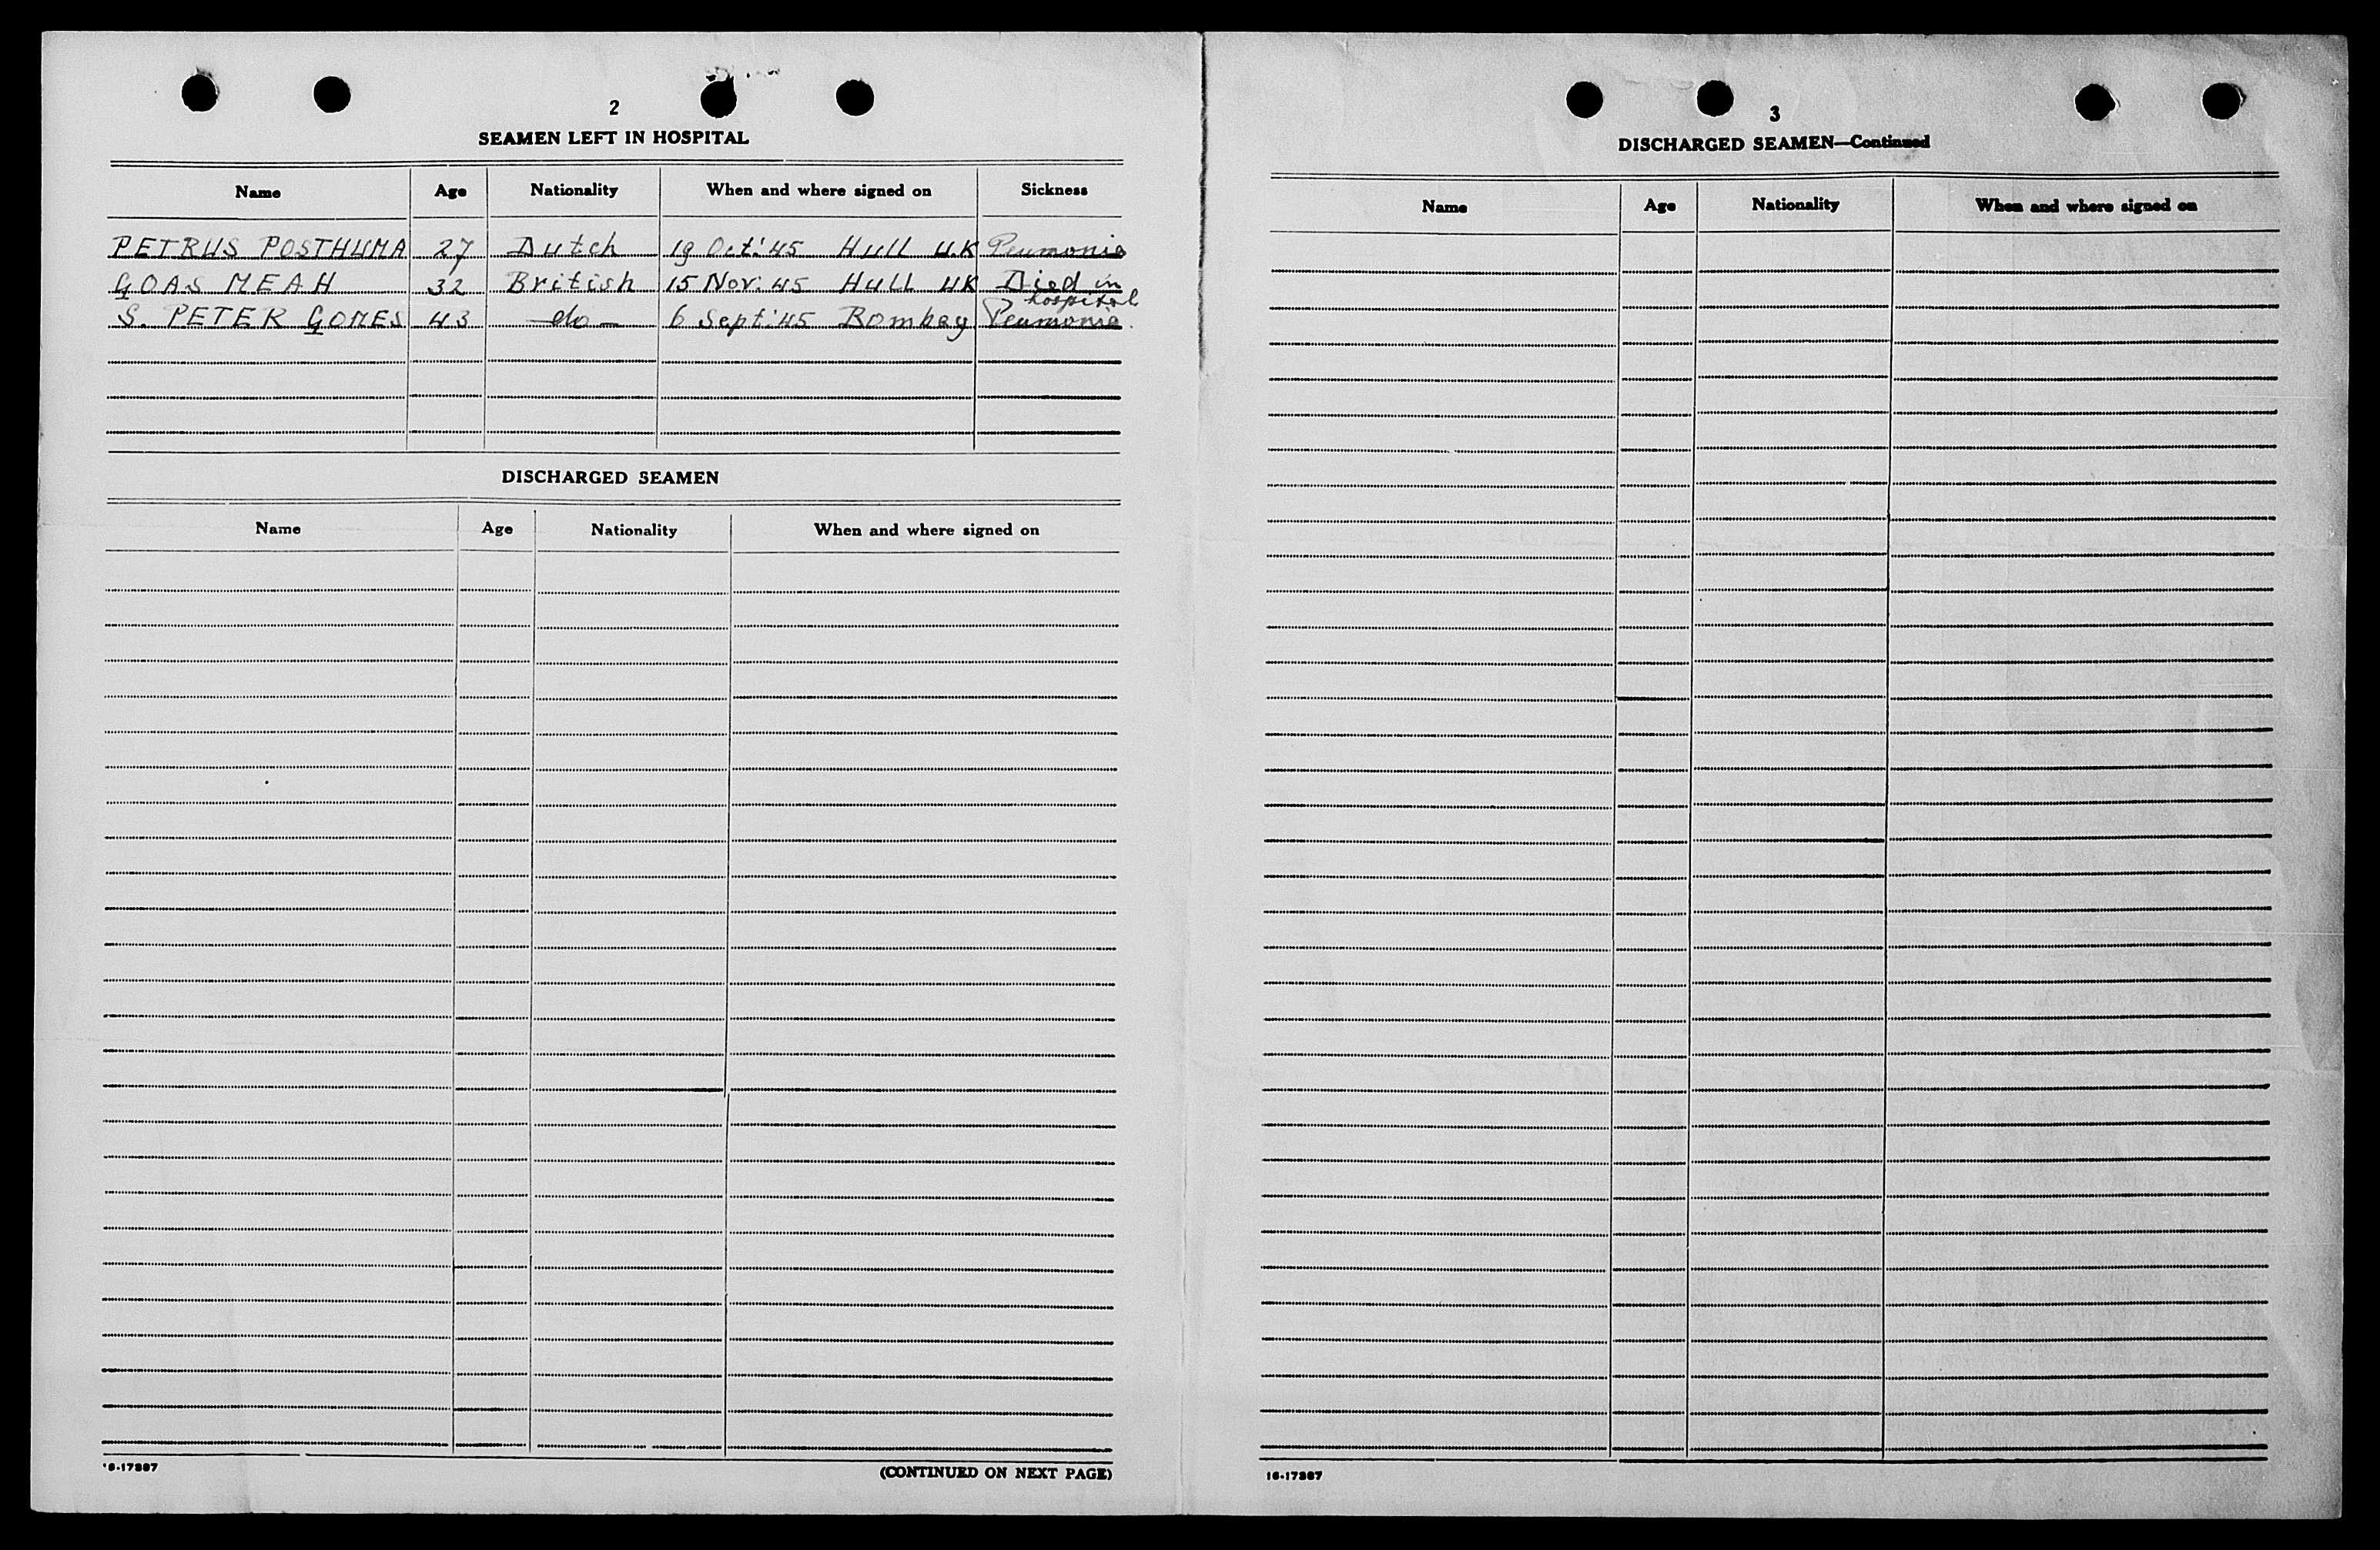 2
SEAMEN LEFT IN HOSPITAL
Name Age Nationality When and where signed on Sickness
PETRUS POSTHUMA 27 Dutch 19 Oct: 45 Hull U.K Peumonia
GOAS MEAH 32 British 15 Nov: 45 Hull UK Died in hospital
S. PETER GOMES 43 -do- 6 Sept: 45 Bombay Peumonia.
DISCHARGED SEAMEN
Name Age Nationality When and where signed on
16-17387
(CONTINUED ON NEXT PAGE)
3
DISCHARGED SEAMEN—Continued
Name Age Nationality When and where signed on
16-17387